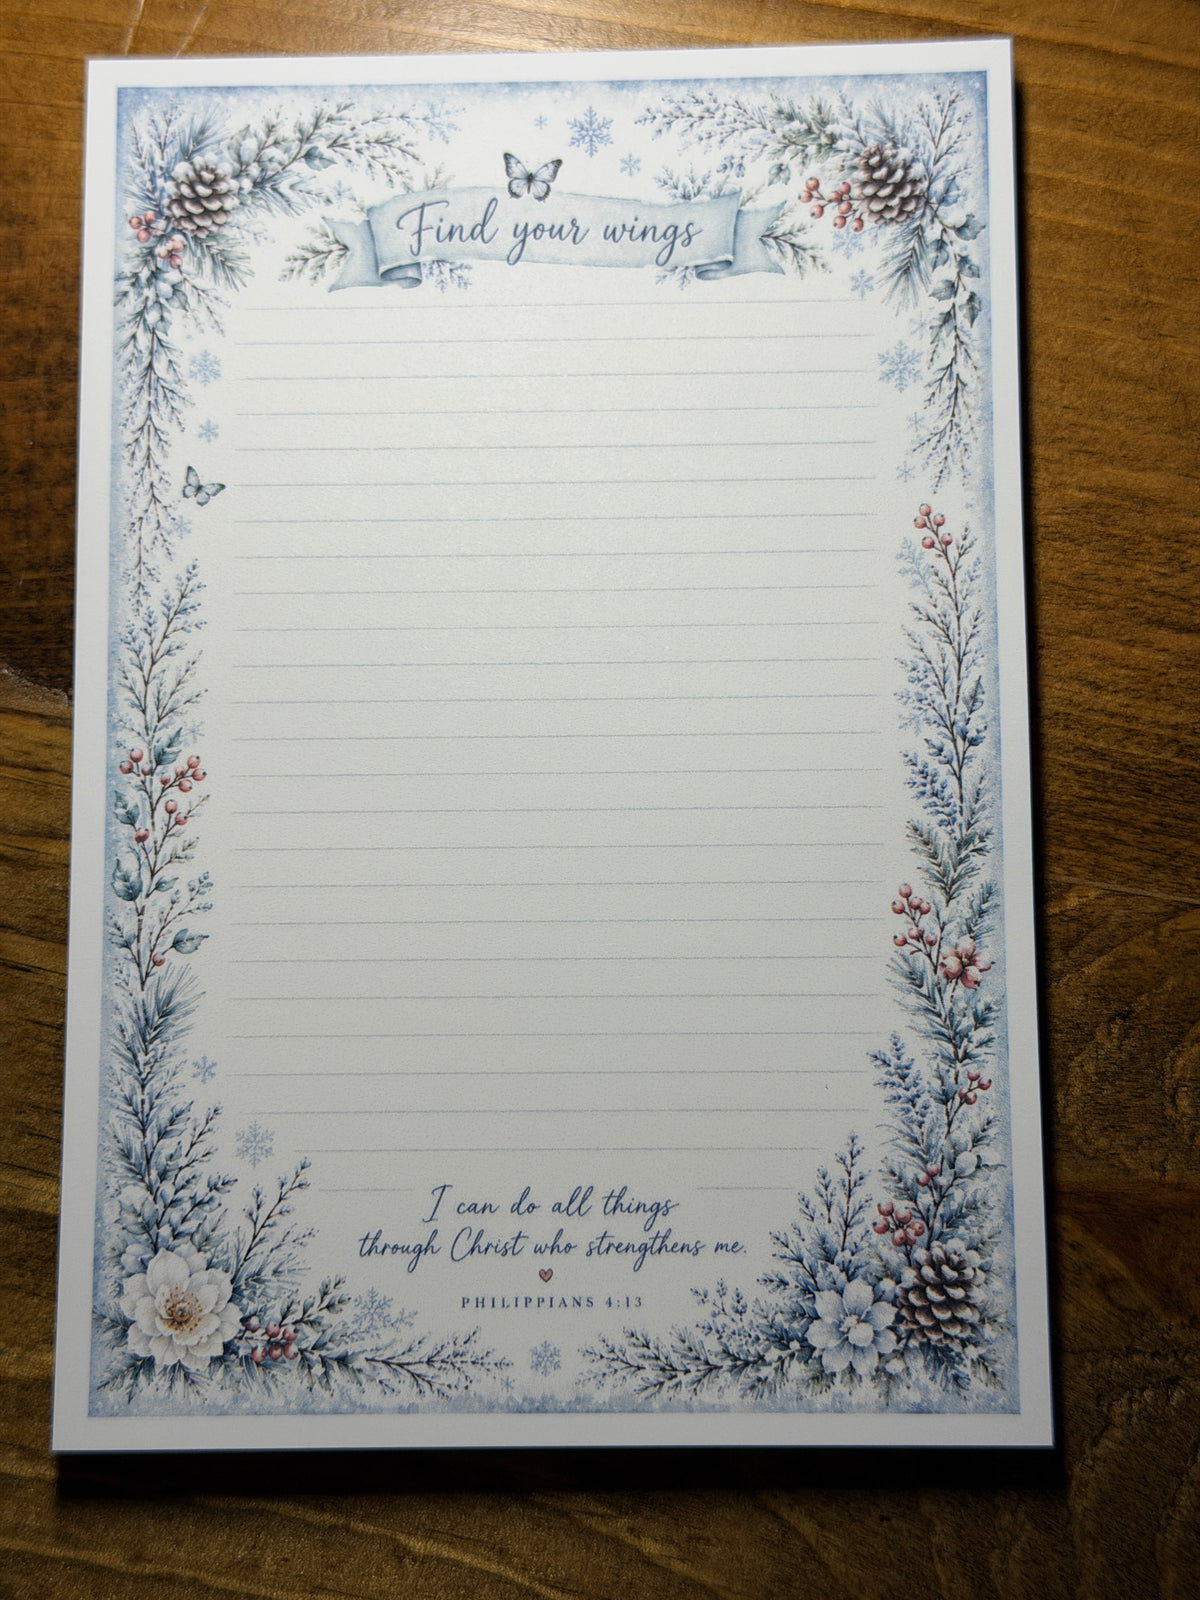 Find your wings
I can do all things
through Christ who strengthens me.
PHILIPPIANS 4:13